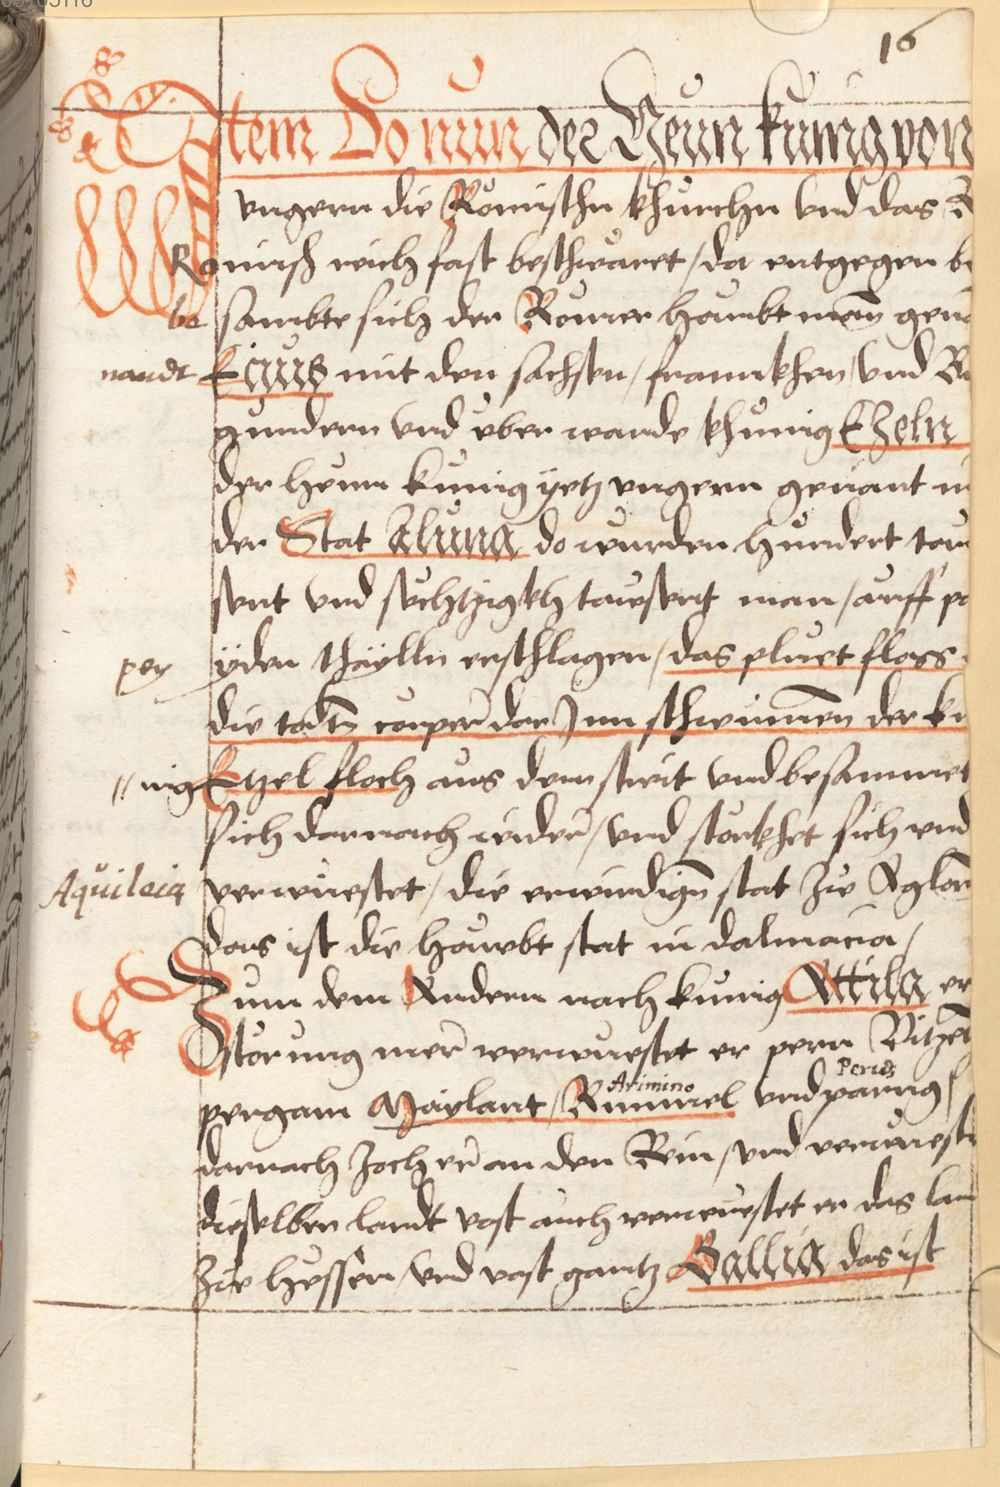 16
Item Do nun der Heun kunig von
vngern die Römischn khurchn vnd das R
Romisch reich fast beschwäret / da entgegen be
be sambte sich der Römer haubt man gen
nandt Ezius mit den sachsen / frannkhen / vnd Bu
gundern vnd vber wandt khunig Ezeln
der heun kunig yetz vngern genant in
der Stat Aluna do wurden hundert tau
sent vnd sechtzigkh tausent man / auff pa
pey yden thaylln erschlagen / das pluet floss
die todtn corper dar Jnn schwimen der ku
nig Etzel floch aus dem streit vnd besammet
sich darnach wider / vnd störkhet sich vnd
Aquileia verwuestet / die erwirdign stat zu Aglar
das ist die haubt stat in dalmacia /
Zum dem Andern nach kunig Attila er
störung mer verwuestet er pern Vitzen
pergam Maylant / Rimmel vnd parug /
Arimino
Perus
darnach zoch er an den Rein / vnd verwuest
dieselben landt vast auch verwuestet er das lan
zu hessen / vnd vast gantz Gallia das ist